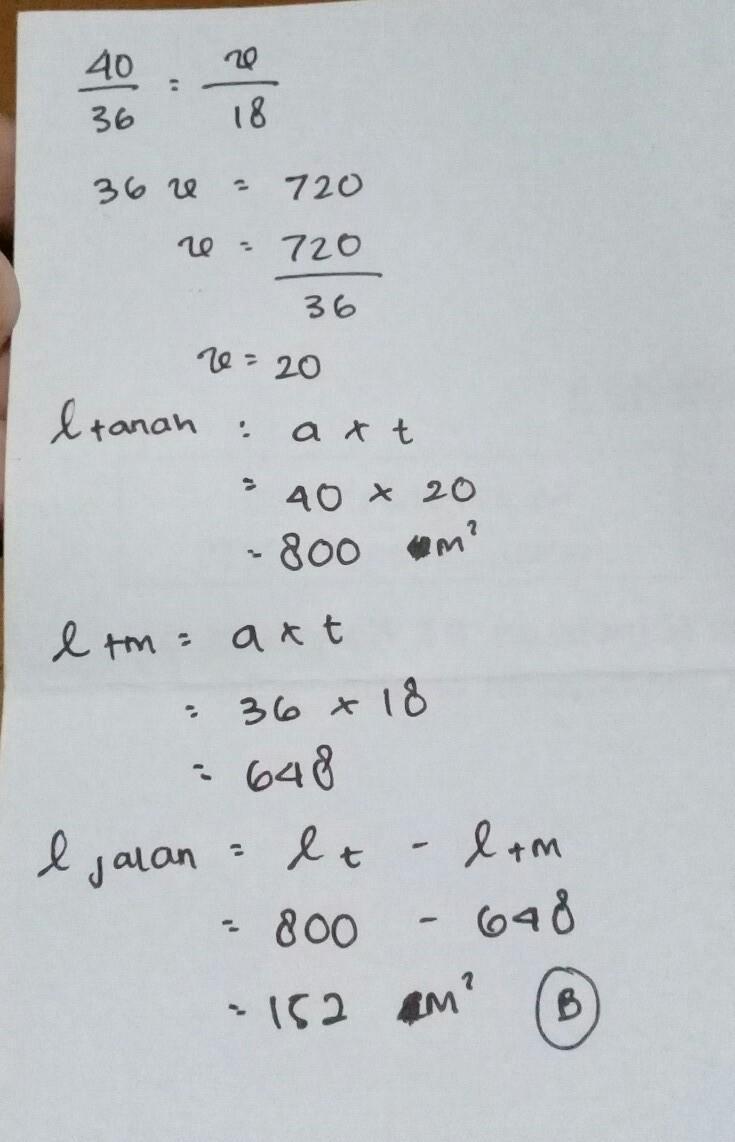 40/36 = x/18
36 x = 720
x = 720/36
x = 20
l tanah : a x t
= 40 x 20
= 800 m²
l tm = a x t
= 36 x 18
= 648
l jalan = l t - l tm
= 800 - 648
= 152 m² B